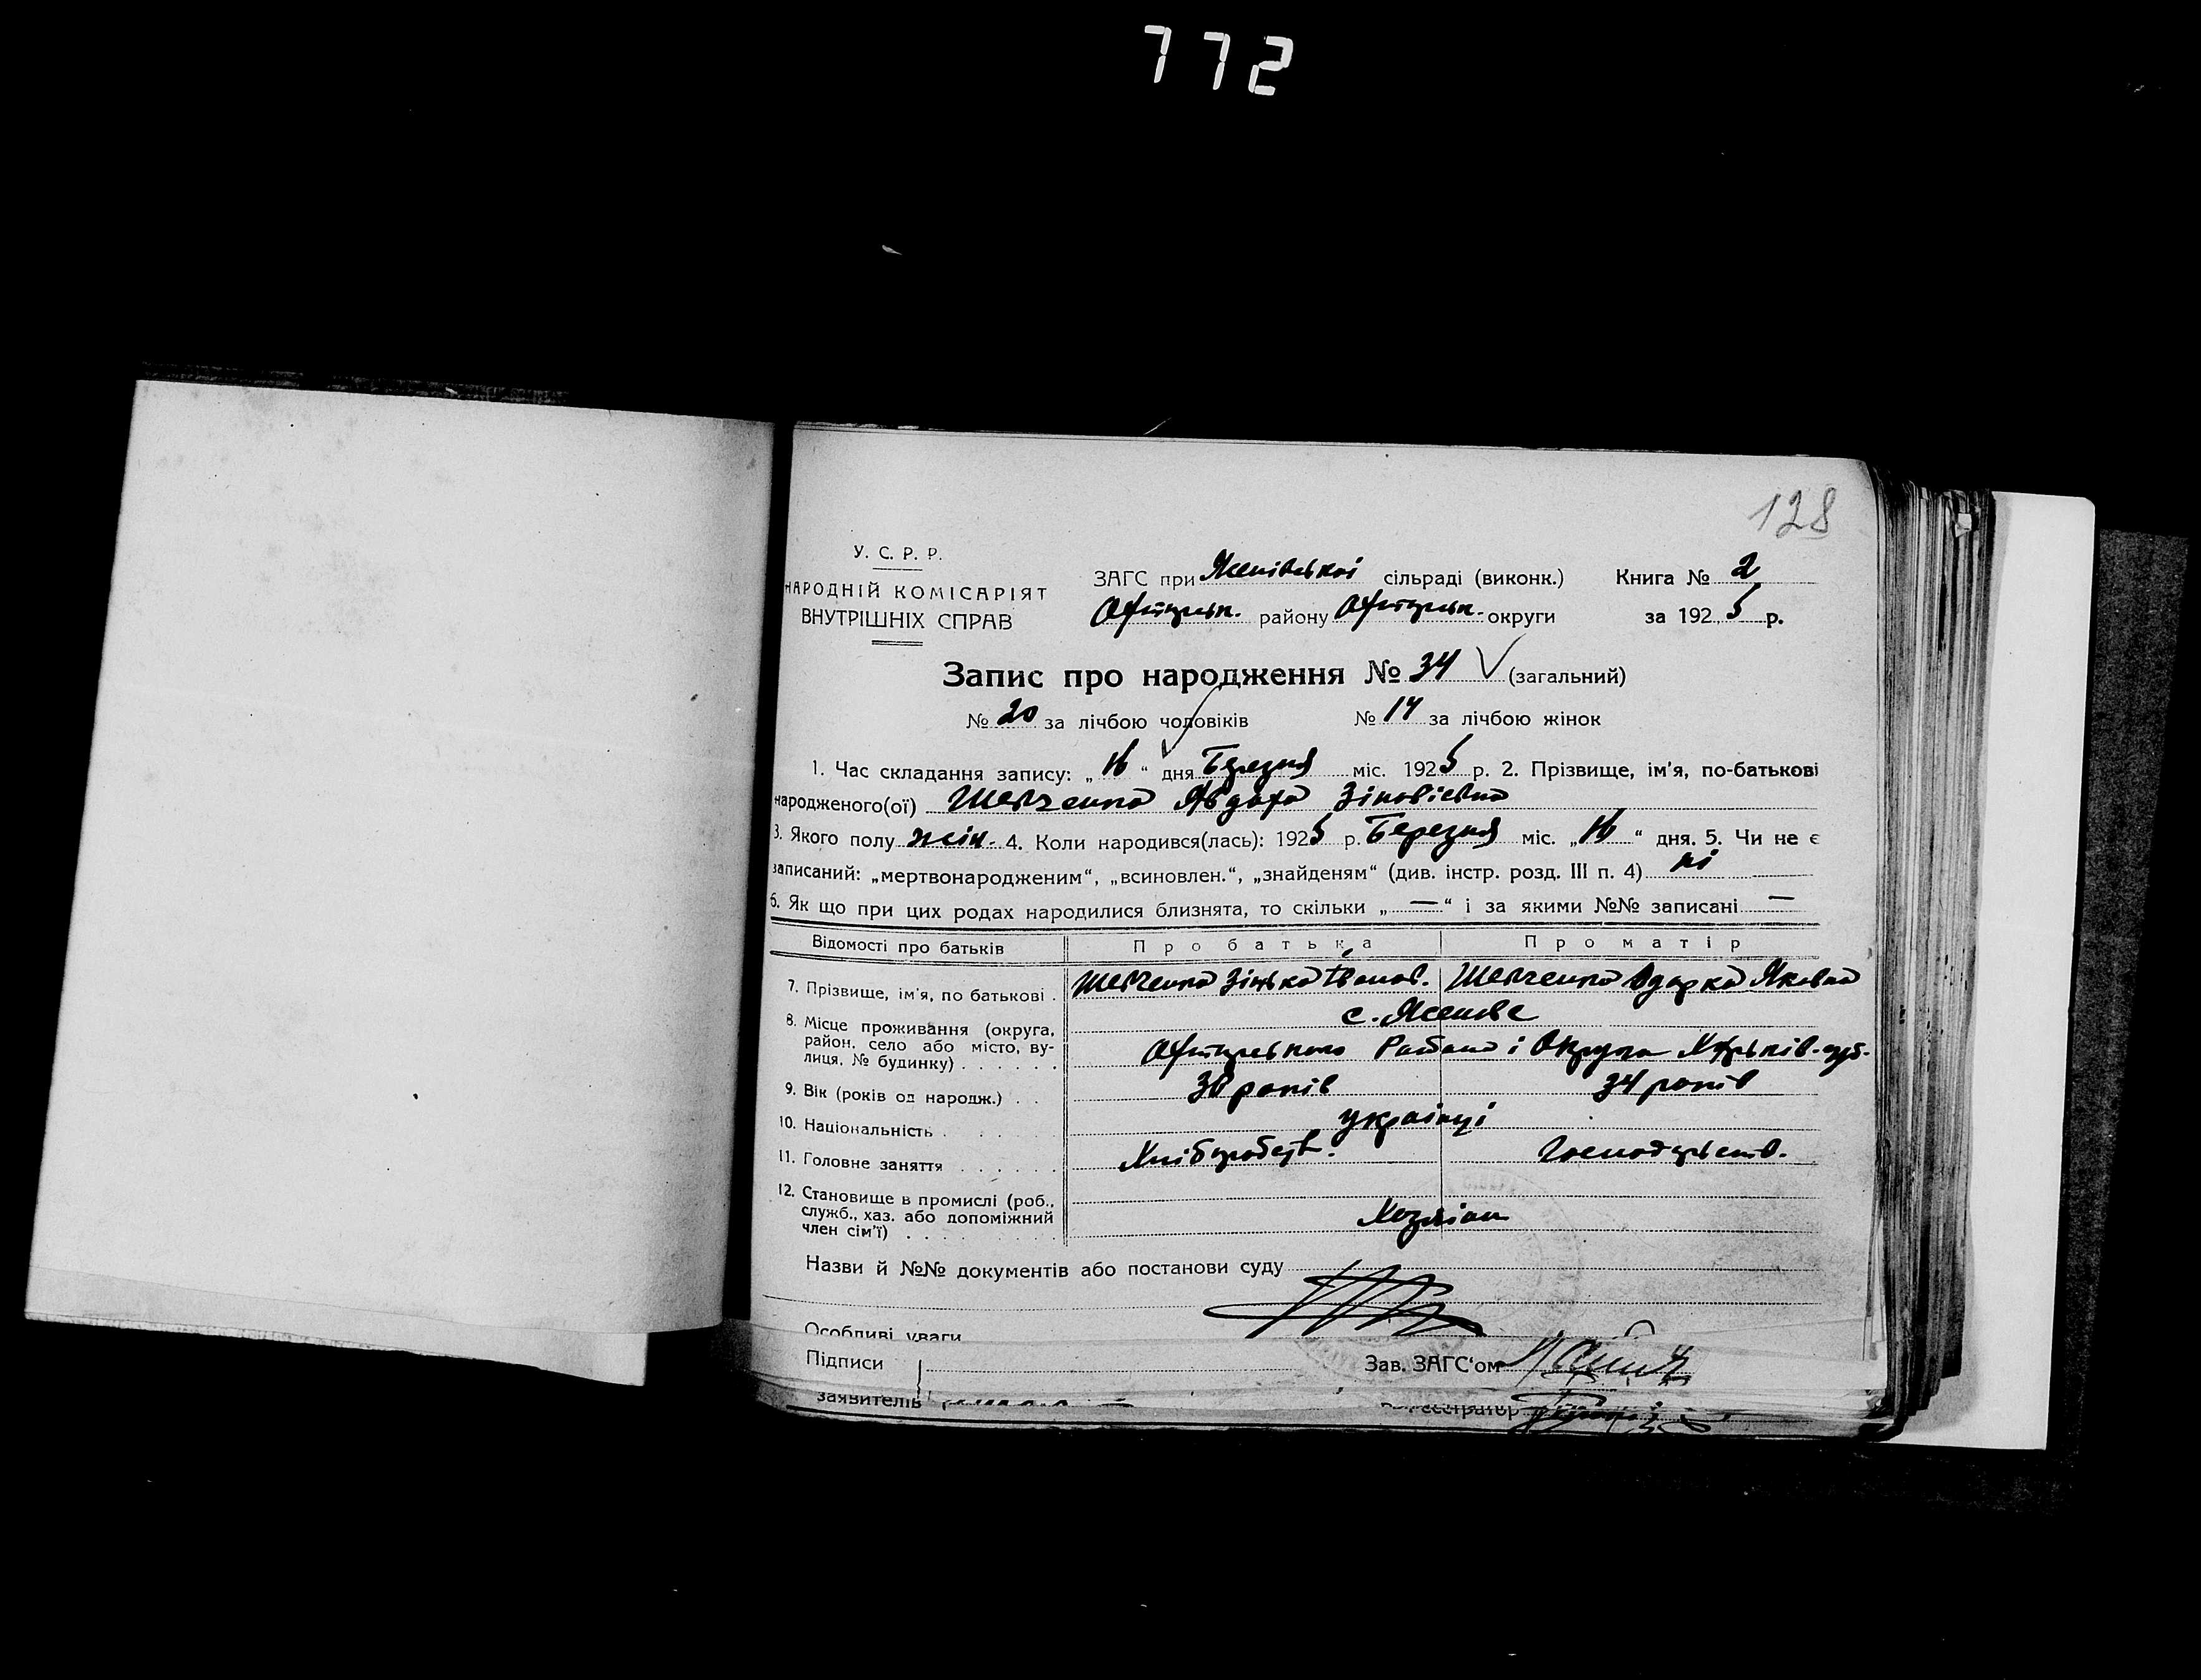 772
128
У. С. Р. Р.
НАРОДНІЙ КОМІСАРІЯТ
ВНУТРІШНІХ СПРАВ
ЗАГС при Ясенівської сільраді (виконк.) Книга № 2
Охтирськ. району Охтирськ. округи за 1925 р.
Запис про народження № 34 (загальний)
№ 20 за лічбою чоловіків № 14 за лічбою жінок
1. Час складання запису: „16“ дня Березня міс. 1925 р. 2. Прізвище, ім'я, по-батькові
народженого(ої) Шевченко Явдоха Зіновієвна
3. Якого полу жін. 4. Коли народився(лась): 1925 р. Березня міс. „16“ дня. 5. Чи не є
записаний: „мертвонародженим“, „всиновлен.“, „знайденям“ (див. інстр. розд. III п. 4) ні
6. Як що при цих родах народилися близнята, то скільки „—“ і за якими №№ записані —
Відомості про батьків Про батька Про матір
7. Прізвище, ім'я, по батькові . Шевченко Зінька Іванов. Шевченко Одарка Яковна
8. Місце проживання (округа, район, село або місто, вулиця, № будинку) . . . . . . с. Ясенове
Охтирського Району і Округи Харьків. губ.
9. Вік (років од народж.) . . 38 років 34 років
10. Національність . . . . . українці
11. Головне заняття . . . . . . Хліборобств. Господарств.
12. Становище в промислі (роб.,
служб., хаз. або допоміжний
член сім'ї) . . . . . . . . . Хозяіни
Назви й №№ документів або постанови суду
Особливі уваги
Підписи Зав. ЗАГС'ом
заявителів Реєстратор